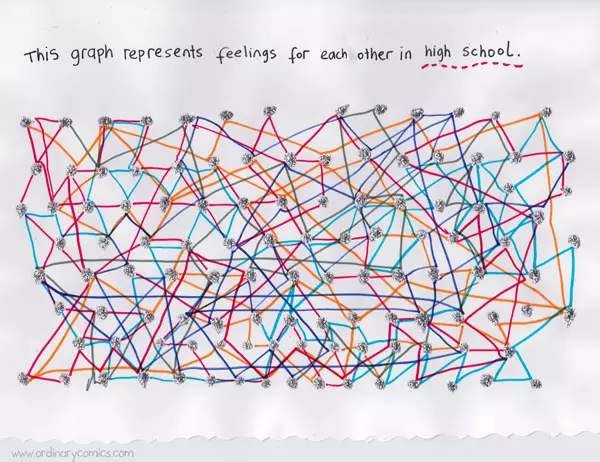 This graph represents feelings for each other in high school.
www.ordinarycomics.com